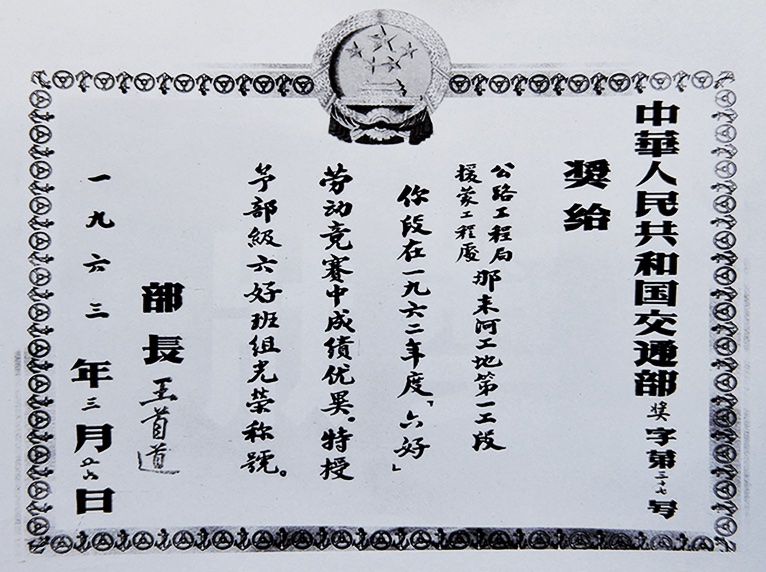 中華人民共和国交通部奖字第三十七号
奬給
公路工程局
援蒙工程處
那末河工地第一工段
你段在一九六二年度「六好」
劳动竞赛中成绩优異。特授
予部級六好班组光荣称號。
部長 王首道
一九六三年三月廿六日